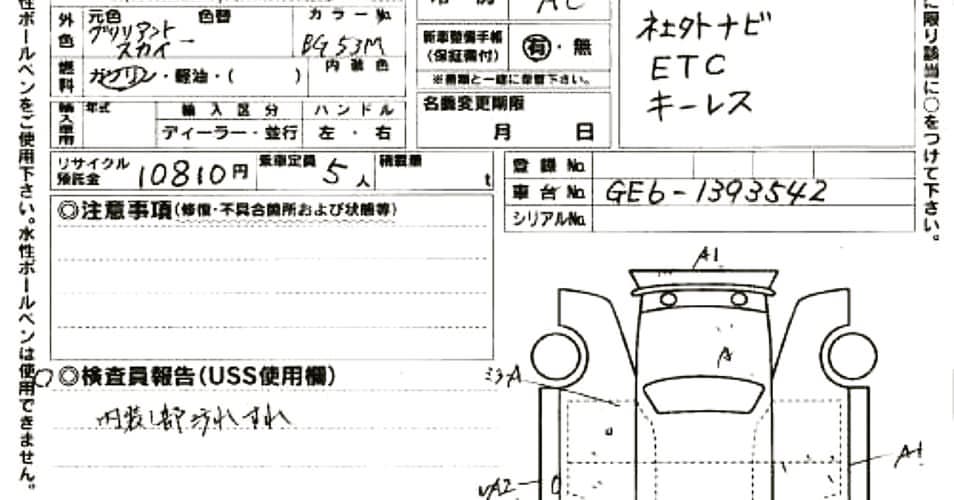 性ボールペンをご使用下さい。水性ボールペンは使用できません。
に限り該当に○をつけて下さい。
外色 元色 色替 カラーNo
ブリリアント
スカイー
BG53M
燃料 ガソリン・軽油・( ) 内装色
輸入車用 年式 輸入区分 ハンドル
ディーラー・並行 左・右
AC
新車整備手帳
(保証書付)
有・無
※書類と一緒に御置下さい。
名義変更期限
月 日
ナビ
ETC
キーレス
リサイクル
預託金
10810円 乗車定員 5人 積載量 t
登録No
車台No GE6-1393542
シリアルNo
◎注意事項(修復・不具合箇所および状態等)
○◎検査員報告(USS使用欄)
内装し部汚れすれ
A1
A
ミラA
A1